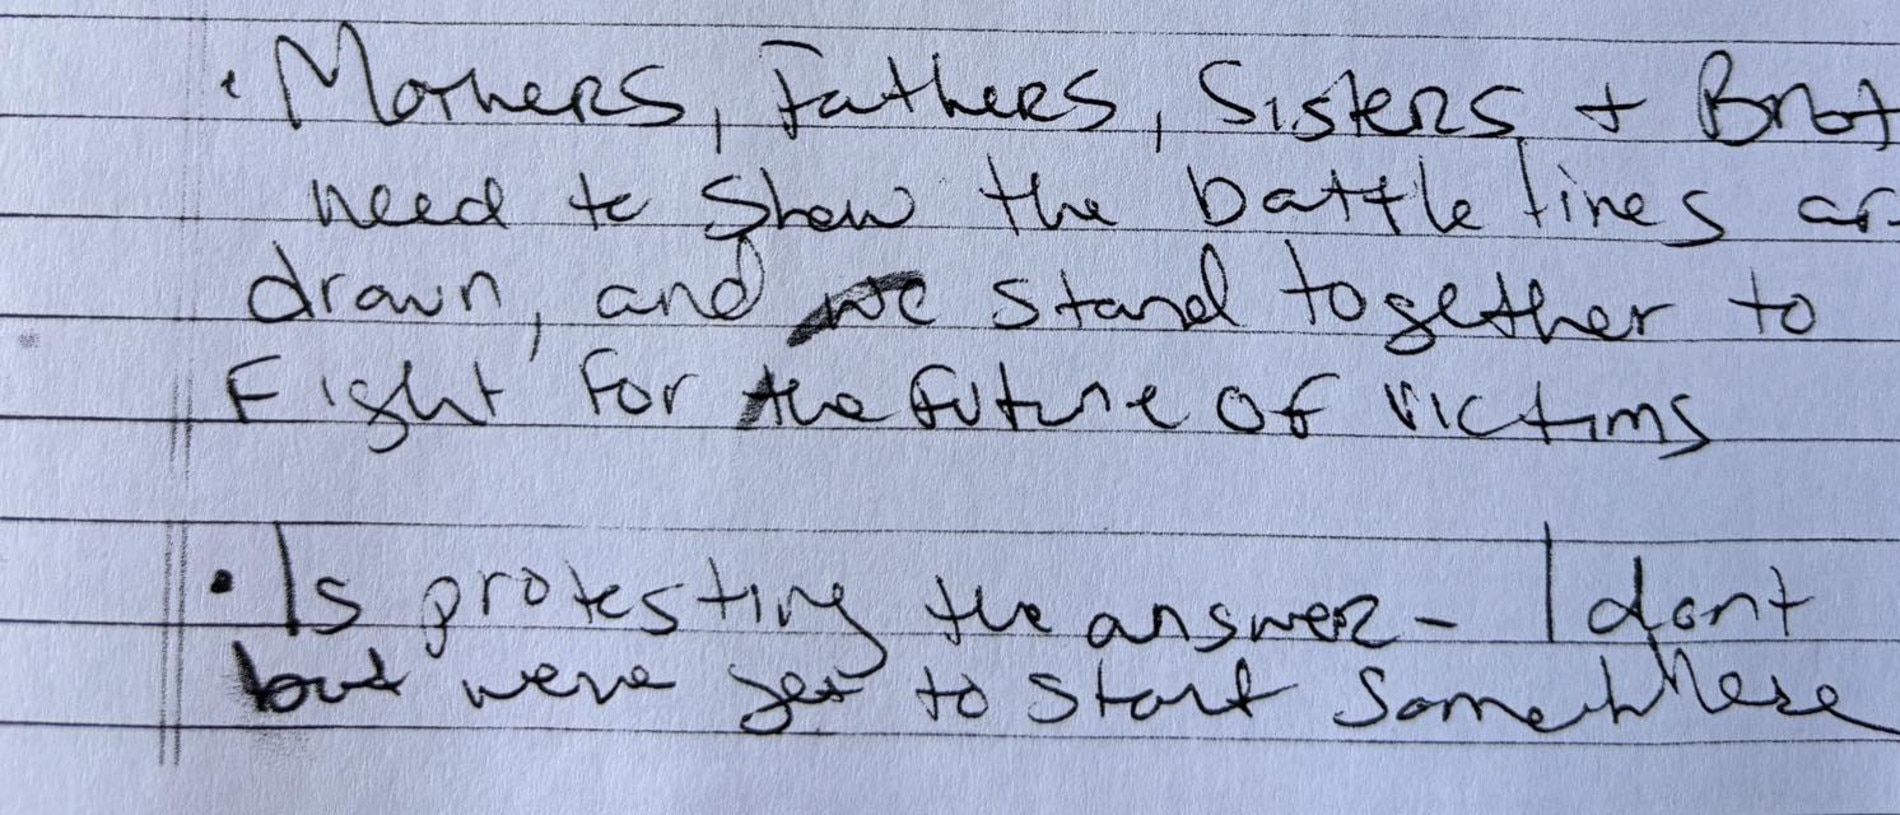 · Mothers, Fathers, Sisters + Brot
need to show the battle lines ar
drawn, and we stand together to
Fight for the future of victims
· Is protesting the answer - I dont
but weve got to start somewhere